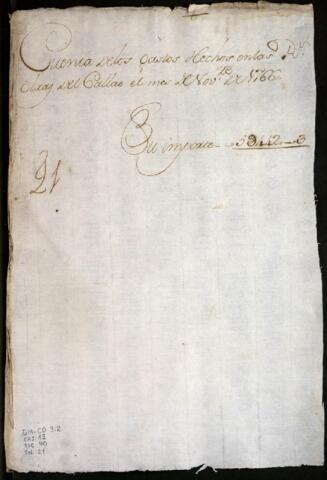 Cuenta delos Gastos Hechos enlas Rs
Obras del Callao el mes de Novre de 1766
Su importe 
21
GM-CO 3.2
CAJ. 12
DOC. 90
Fol. 21